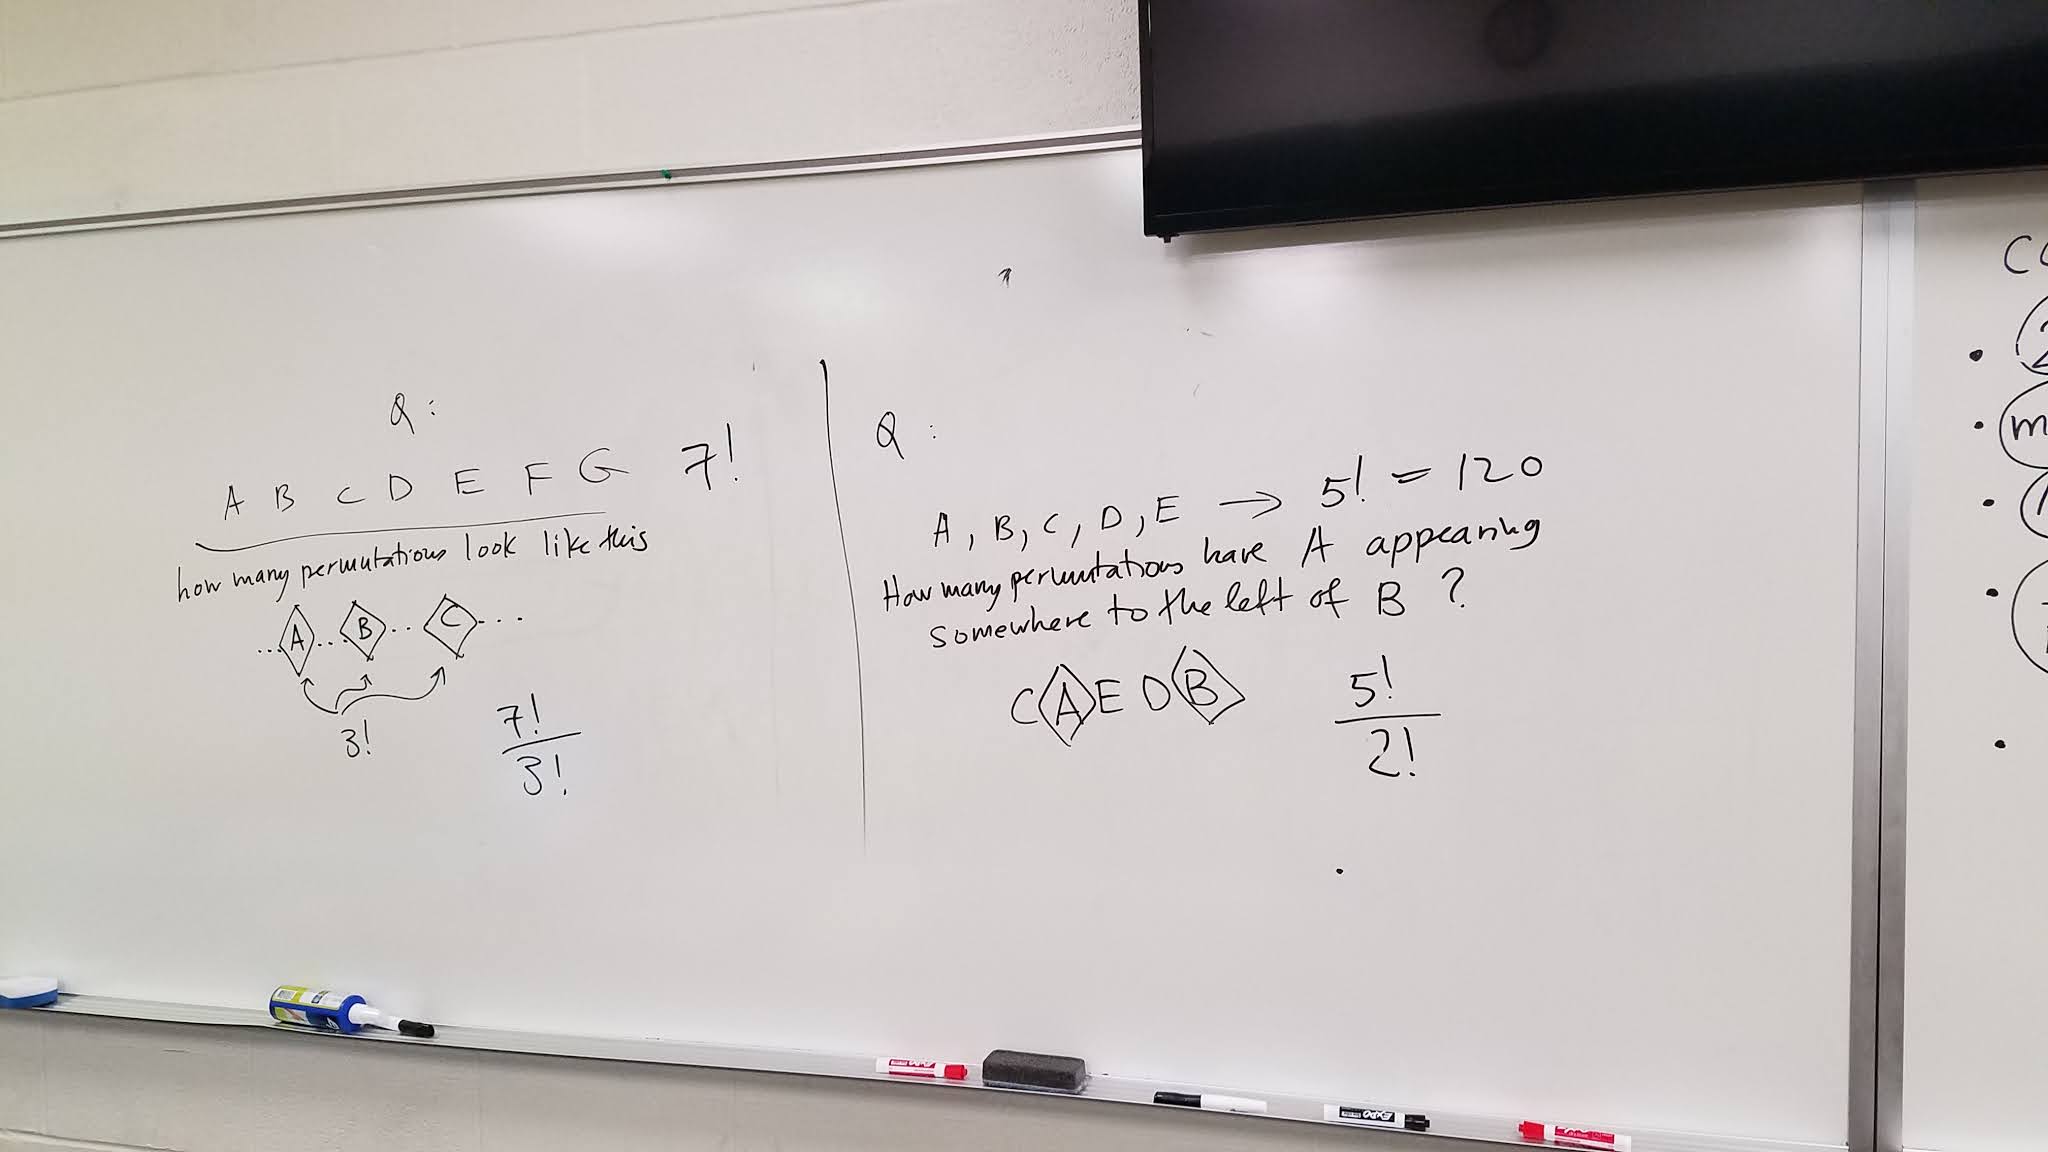 Q:
A B C D E F G 7!
how many permutations look like this
...A...B..C...
3!
7!
3!
Q:
A, B, C, D, E → 5! = 120
How many permutations have A appearing
somewhere to the left of B ?
C A E D B
5!
2!
EXPO